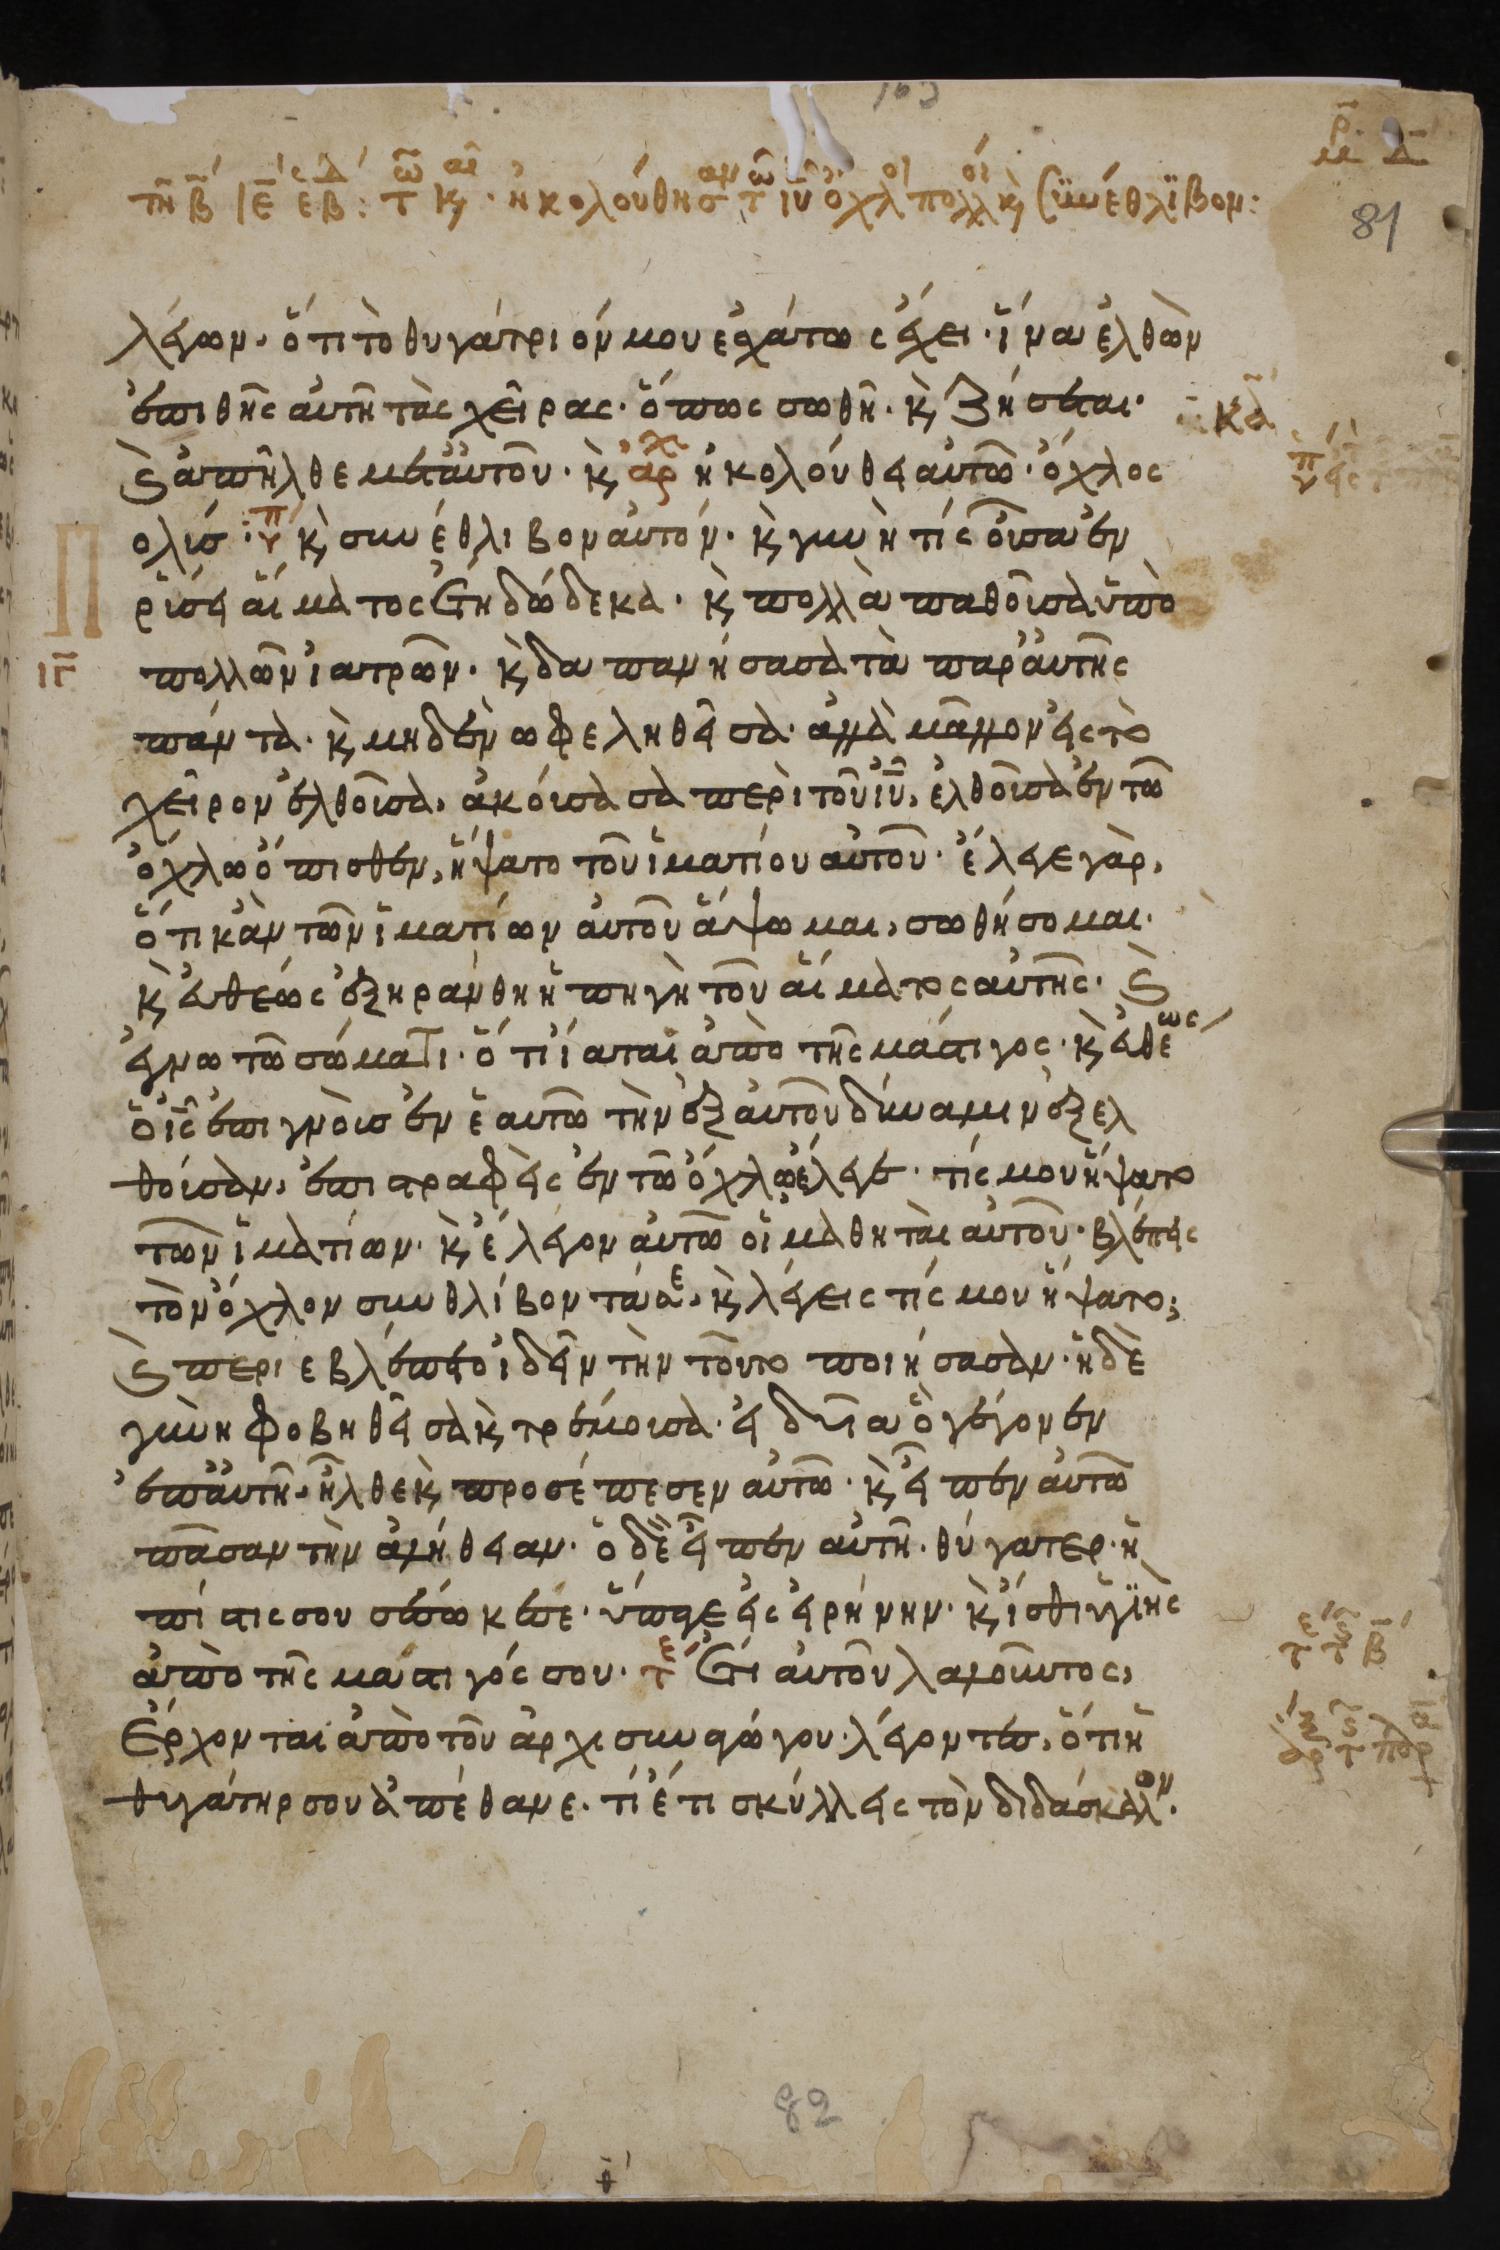 τῆ β ιε εβδ: τω καιρ. ἠκολούθησαν τω ιυ ὄχλοι πολλοὶ κ, συνέθλιβον:
81
λέγων. ὅτι τὸ θυγάτριόν μου ἐσχάτως ἔχει. ἵνα ἐλθὼν
ἐπιθῆς αὐτῆ τὰς χεῖρας. ὅπως σωθῆ. κ, ζήσεται.
κὰ
κ, ἀπῆλθε μετ' αὐτοῦ. κ, αρχ ἠκολούθει αὐτῶ ὄχλος
πολύς. κ, συνέθλιβον αὐτόν. κ, γυνή τίς οὖσα ἐν
ῥύσει αἵματος ἔτη δώδεκα. κ, πολλὰ παθοῦσα ὑπὸ
ιγ
πολλῶν ἰατρῶν. κ, δαπανήσασα τὰ παρ' αὐτῆς
πάντα. κ, μηδὲν ὠφεληθεῖσα. ἀλλὰ μᾶλλον εἰς τὸ
χεῖρον ἐλθοῦσα, ἀκούσασα περὶ τοῦ ιυ, ἐλθοῦσα ἐν τῶ
ὄχλω ὄπισθεν, ἥψατο τοῦ ἱματίου αὐτοῦ. ἔλεγε γὰρ,
ὅτι κἂν τῶν ἱματίων αὐτοῦ ἅψωμαι, σωθήσομαι.
κ, εὐθέως ἐξηράνθη ἡ πηγὴ τοῦ αἵματος αὐτῆς. κ,
ἔγνω τῶ σώματι. ὅτι ἴαται ἀπὸ τῆς μάστιγος. κ, εὐθέως
ὁ ις ἐπιγνοὺς ἐν ἑαυτῶ τὴν ἐξ αὐτοῦ δύναμιν ἐξελ
θοῦσαν, ἐπιστραφεὶς ἐν τῶ ὄχλω ἔλεγε. τίς μου ἥψατο
τῶν ἱματίων. κ, ἔλεγον αὐτῶ οἱ μαθηταὶ αὐτοῦ. βλέπεις
τὸν ὄχλον συνθλίβοντά σε, κ, λέγεις τίς μου ἥψατο;
κ, περιεβλέπετο ἰδεῖν τὴν τοῦτο ποιήσασαν. ἡ δὲ
γυνὴ φοβηθεῖσα κ, τρέμουσα. εἰδυῖα ὃ γέγονεν
ἐπ' αὐτῆ, ἦλθε κ, προσέπεσεν αὐτῶ. κ, εἶπεν αὐτῶ
πᾶσαν τὴν ἀλήθειαν. ὁ δὲ εἶπεν αὐτῆ. θύγατερ. ἡ
πίστις σου σέσωκέ σε. ὕπαγε εἰς εἰρήνην. κ, ἴσθι ὑγιὴς
ἀπὸ τῆς μάστιγός σου. τε Ἔτι αὐτοῦ λαλοῦντος,
ἔρχονται ἀπὸ τοῦ ἀρχισυναγώγου λέγοντες, ὅτι ἡ
θυγάτηρ σου ἀπέθανε. τί ἔτι σκύλλεις τὸν διδάσκαλον.
82